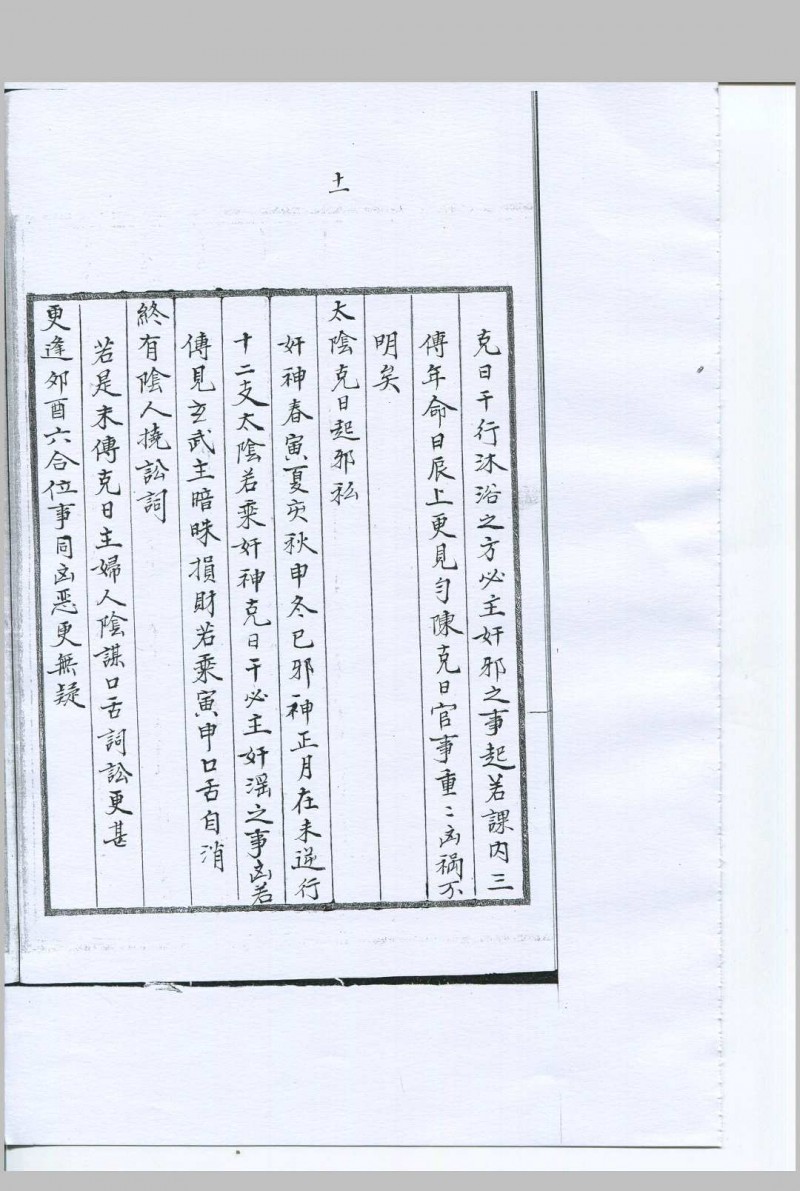 十一
克日干行沐浴之方必主奸邪之事起若課内三
傳年命日辰上更見勾陳克日官事重〻凶禍不
明矣
太陰克日起邪私
奸神春寅夏亥秋申冬巳邪神正月在未逆行
十二支太陰若乘奸神克日干必主奸淫之事凶若
傳見玄武主暗昧損財若乘寅申口舌自消
終有陰人撓訟詞
若是末傳克日主婦人陰謀口舌詞訟更甚
更逢卯酉六合位事同凶恶更無疑